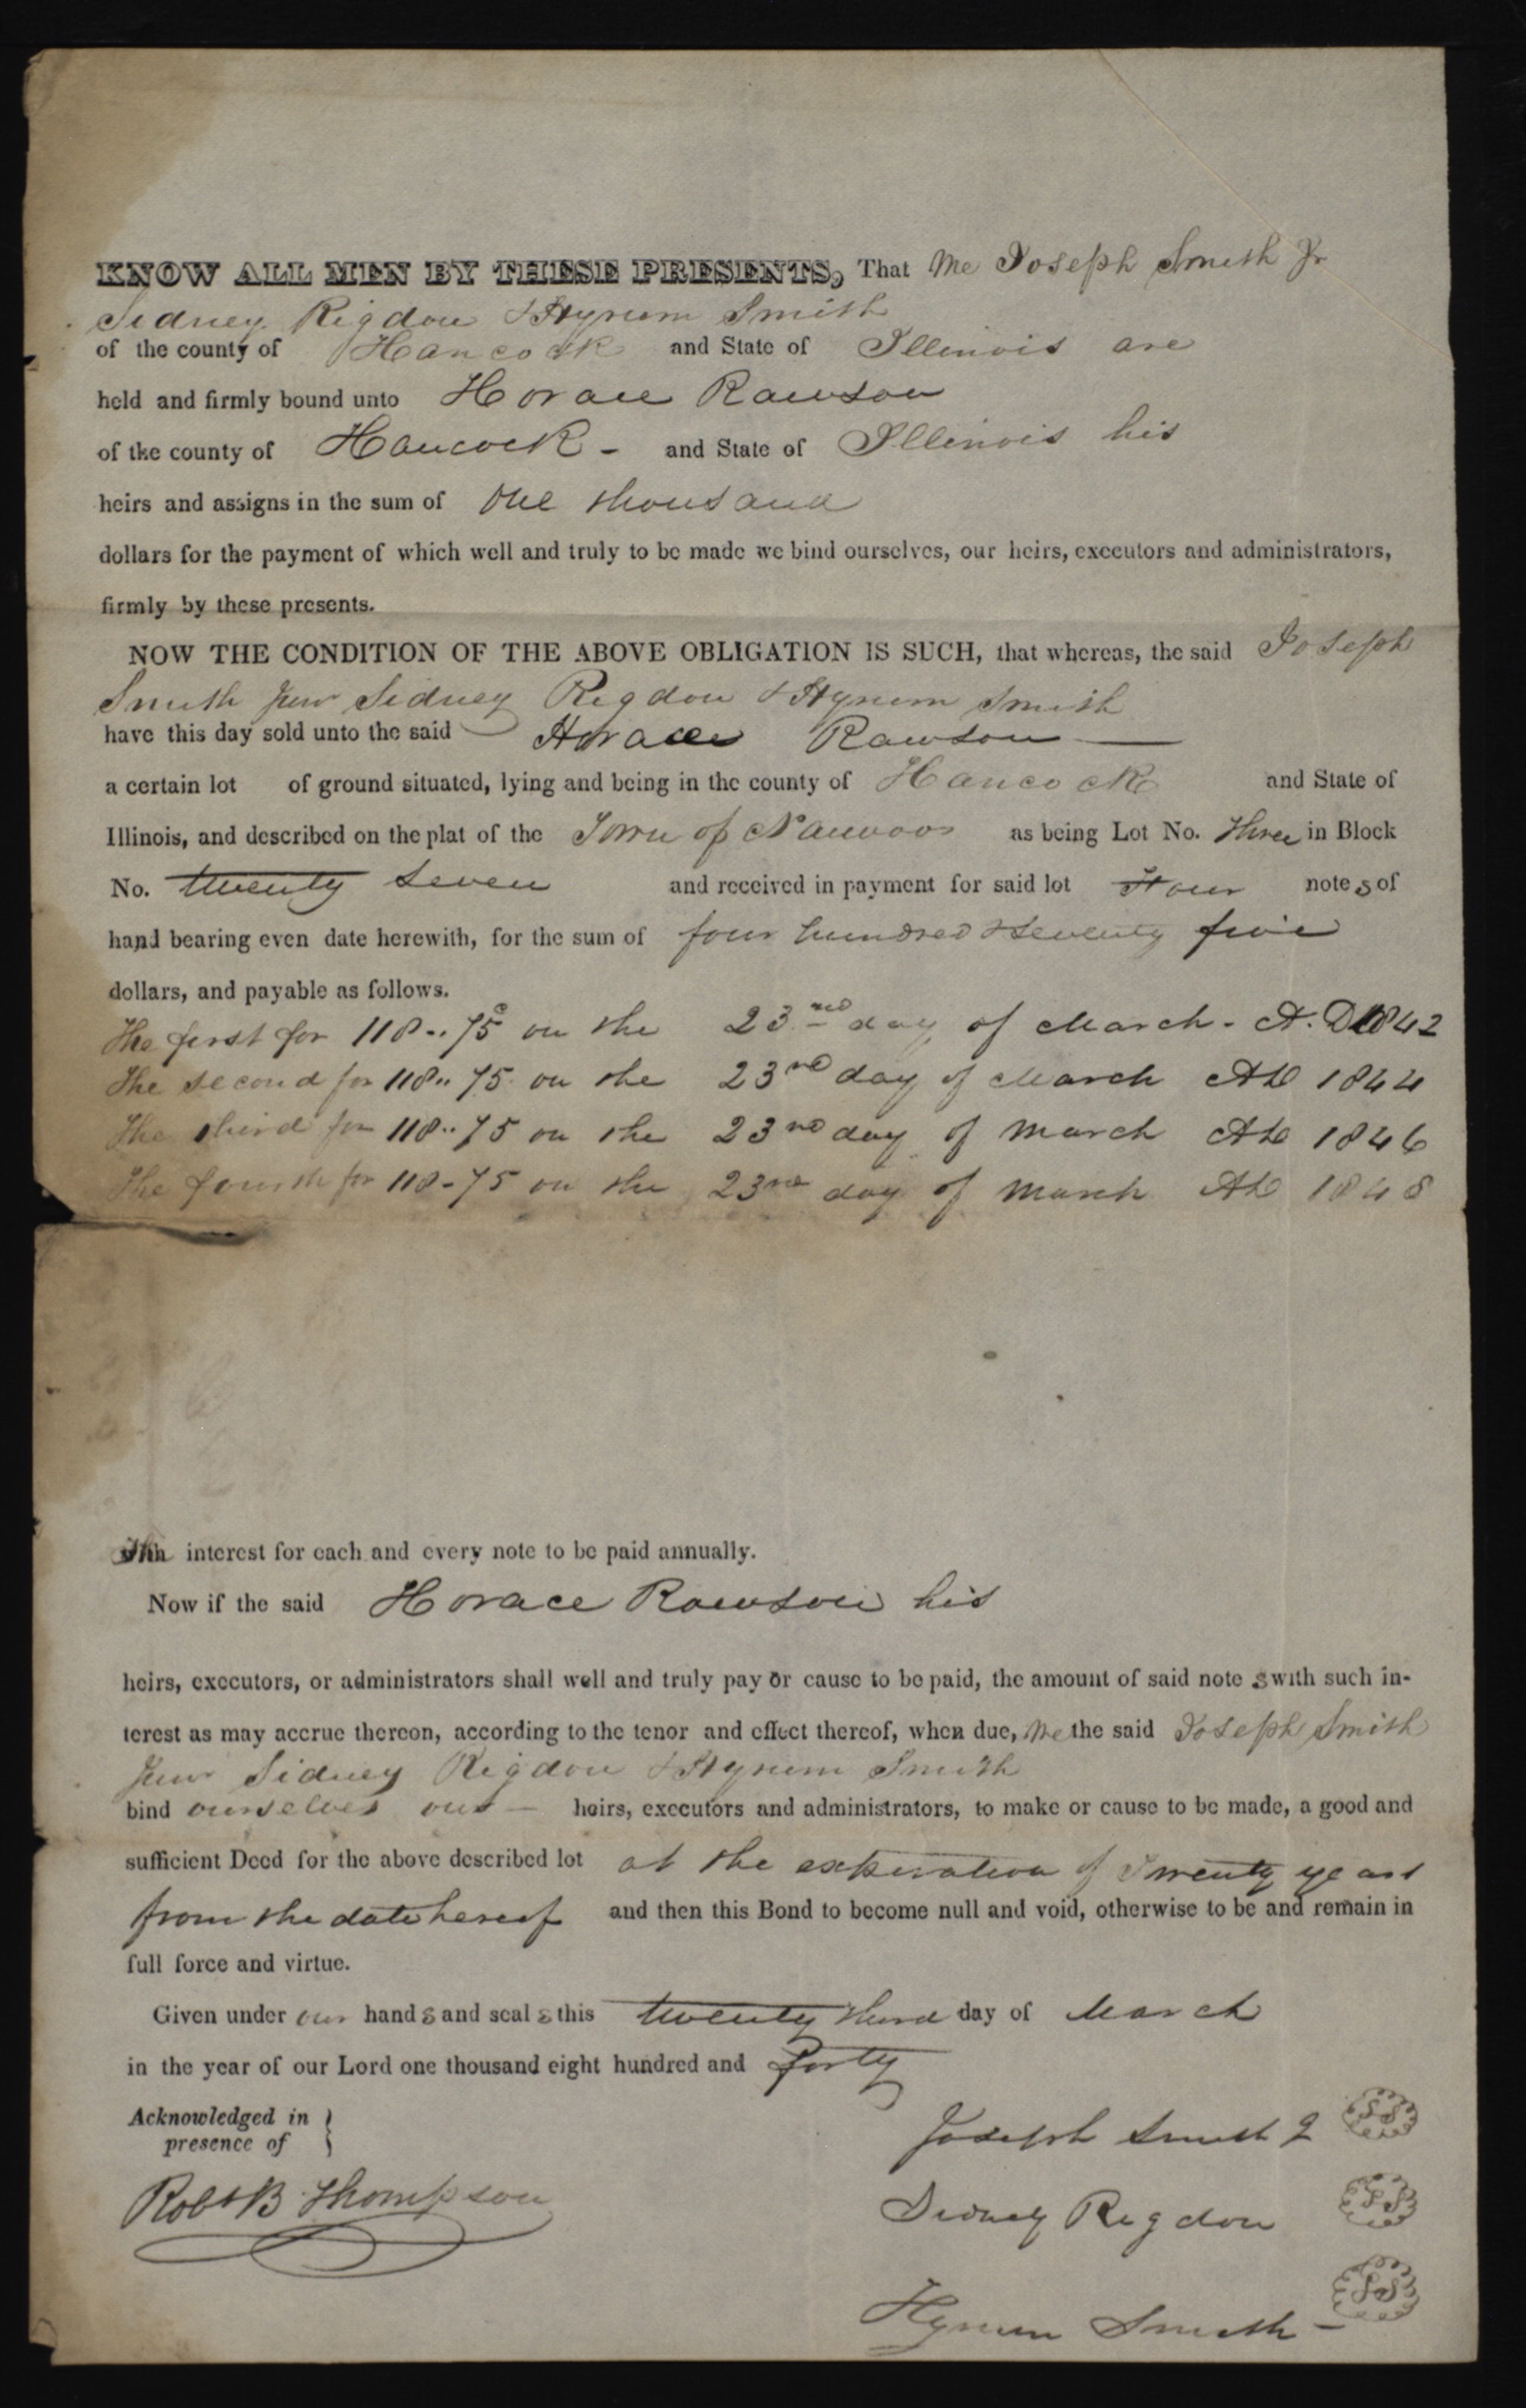 KNOW ALL MEN BY THESE PRESENTS, That We Joseph Smith Jr
Sidney Rigdon & Hyrum Smith
of the county of Hancock and State of Illinois are
held and firmly bound unto Horace Rawson
of the county of Hancock - and State of Illinois his
heirs and assigns in the sum of One thousand
dollars for the payment of which well and truly to be made we bind ourselves, our heirs, executors and administrators,
firmly by these presents.
NOW THE CONDITION OF THE ABOVE OBLIGATION IS SUCH, that whereas, the said Joseph
Smith Junr Sidney Rigdon & Hyrum Smith
have this day sold unto the said Horace Rawson —
a certain lot of ground situated, lying and being in the county of Hancock and State of
Illinois, and described on the plat of the Town of Nauvoo as being Lot No. three in Block
No. twenty seven and received in payment for said lot Four notes of
hand bearing even date herewith, for the sum of four hundred & seventy five
dollars, and payable as follows.
The first for 118..75 on the 23rd day of March - A.D 1842
The second for 118..75 on the 23rd day of March AD 1844
The third for 118..75 on the 23rd day of March AD 1846
The fourth for 118-75 on the 23rd day of March AD 1848
interest for each and every note to be paid annually.
Now if the said Horace Rawson his
heirs, executors, or administrators shall well and truly pay or cause to be paid, the amount of said note s with such in-
terest as may accrue thereon, according to the tenor and effect thereof, when due, We the said Joseph Smith
Junr Sidney Rigdon & Hyrum Smith
bind ourselves our — heirs, executors and administrators, to make or cause to be made, a good and
sufficient Deed for the above described lot at the expiration of Twenty years
from the date hereof and then this Bond to become null and void, otherwise to be and remain in
full force and virtue.
Given under our hands and seals this twenty third day of March
in the year of our Lord one thousand eight hundred and forty
Acknowledged in
presence of }
Joseph Smith J
Robt B Thompson
Sidney Rigdon
Hyrum Smith -